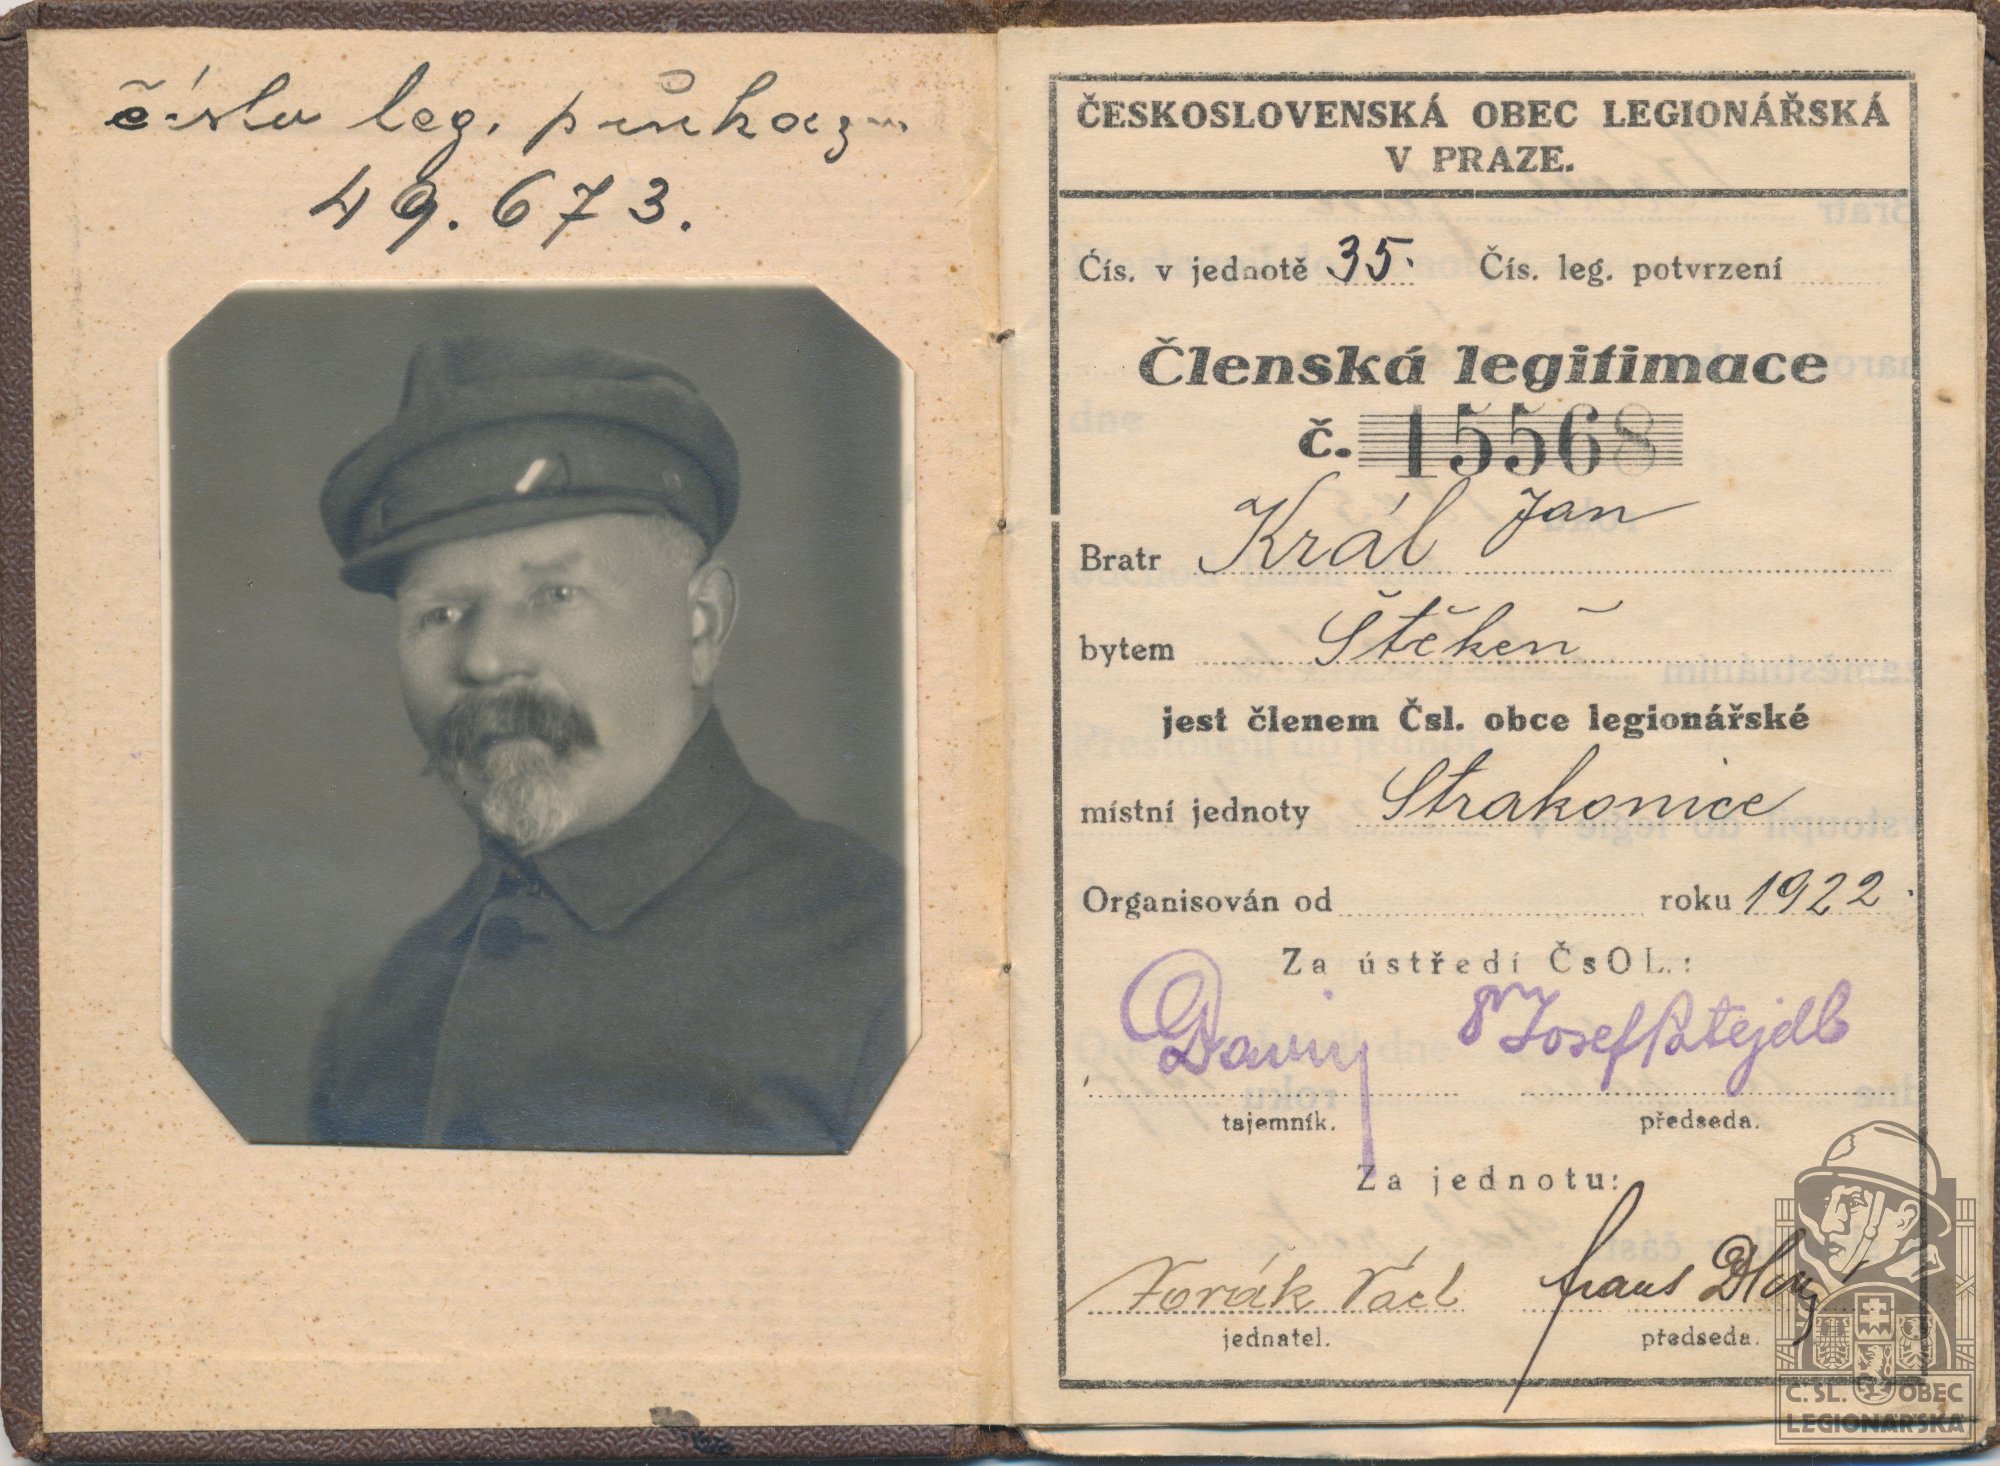 číslo leg. průkazu
49.673.
ČESKOSLOVENSKÁ OBEC LEGIONÁŘSKÁ
V PRAZE.
Čís. v jednotě 35. Čís. leg. potvrzení
Členská legitimace
č. 15568
Bratr Král Jan
bytem Štěkeň
jest členem Čsl. obce legionářské
místní jednoty Strakonice
Organisován od roku 1922.
Za ústředí ČsOL.:
Josef Patejdl
tajemník. předseda.
Za jednotu:
Václ
jednatel. předseda.
Č. SL. OBEC
LEGIONÁŘSKÁ